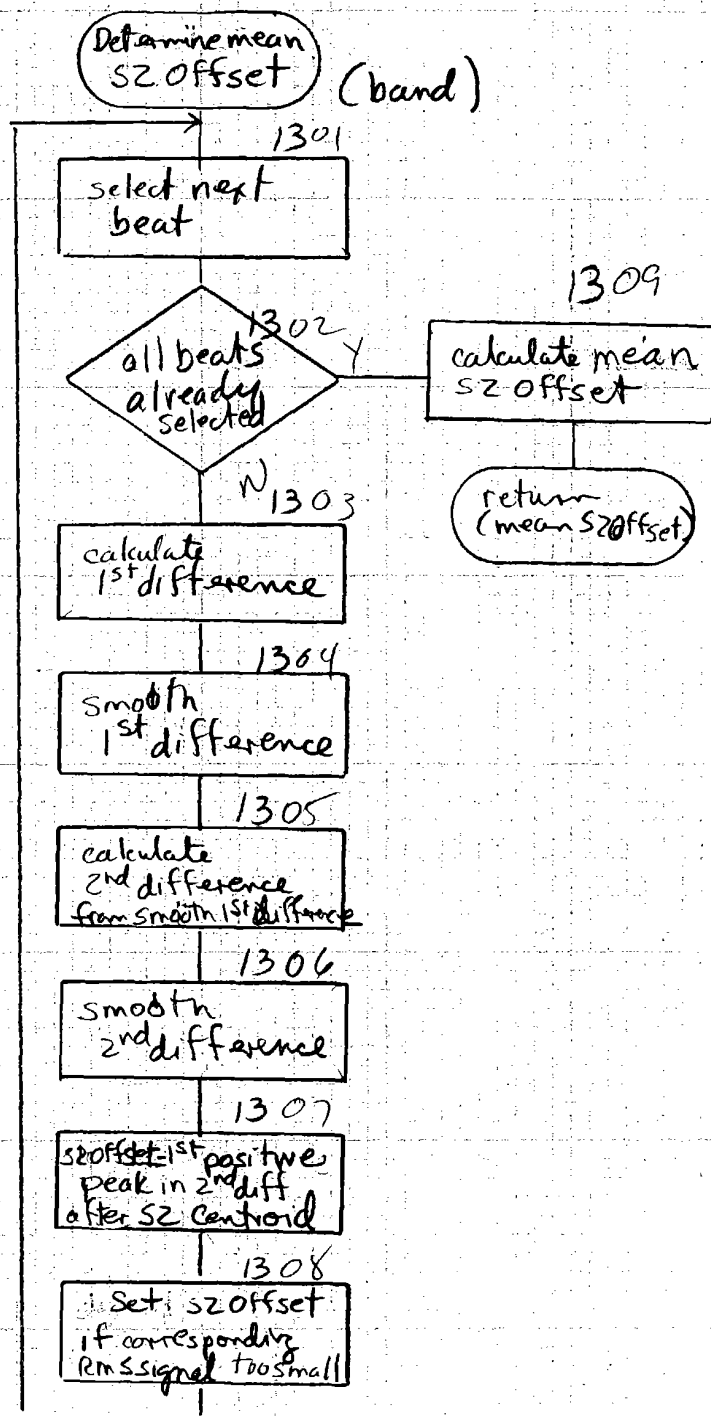 Determine mean
S2 Offset
(band)
1301
select next
beat
1302
all beats
already
selected
Y
N
1309
calculate mean
S2 Offset
return
(mean S2Offset)
1303
calculate
1st difference
1304
smooth
1st difference
1305
calculate
2nd difference
from smooth 1st difference
1306
smooth
2nd difference
1307
S2Offset=1st positive
peak in 2nd diff
after S2 Centroid
1308
Set S2 Offset
if corresponding
RMS signal too small